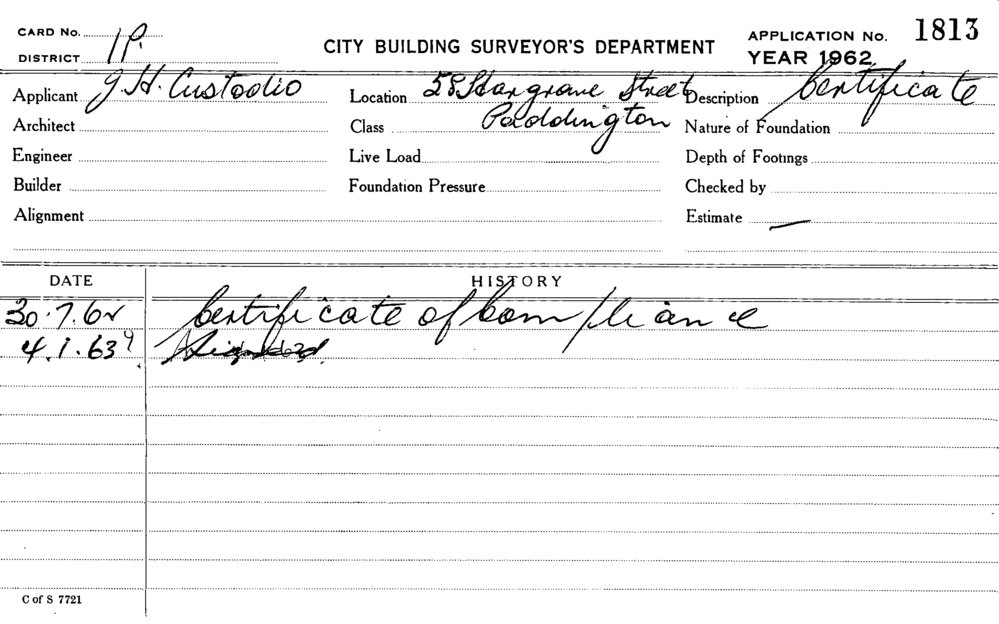 CARD No.
DISTRICT 1P.
CITY BUILDING SURVEYOR'S DEPARTMENT
APPLICATION No. 1813
YEAR 1962
Applicant J. H. Custodio
Location 58 Hargrave Street
Paddington
Description Certificate
Architect
Class
Nature of Foundation
Engineer
Live Load
Depth of Footings
Builder
Foundation Pressure
Checked by
Alignment
Estimate —
DATE HISTORY
30.7.62 Certificate of Compliance
4.1.63
C of S 7721